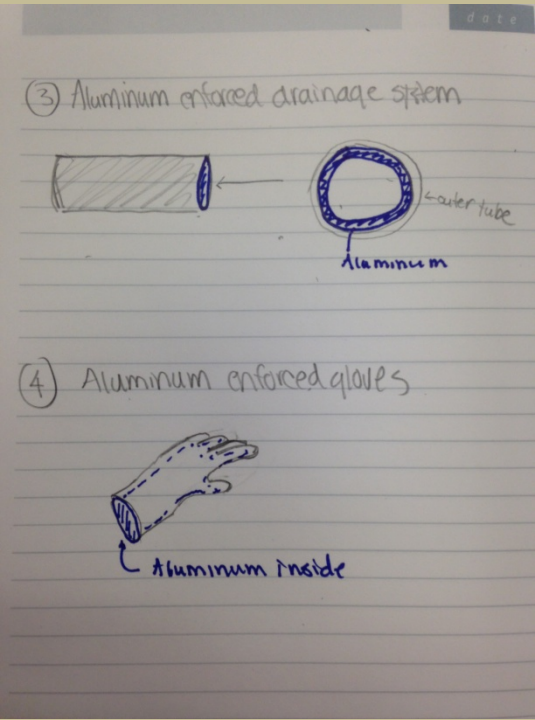 date
③ Aluminum enforced drainage system
outer tube
Aluminum
④ Aluminum enforced gloves
Aluminum inside